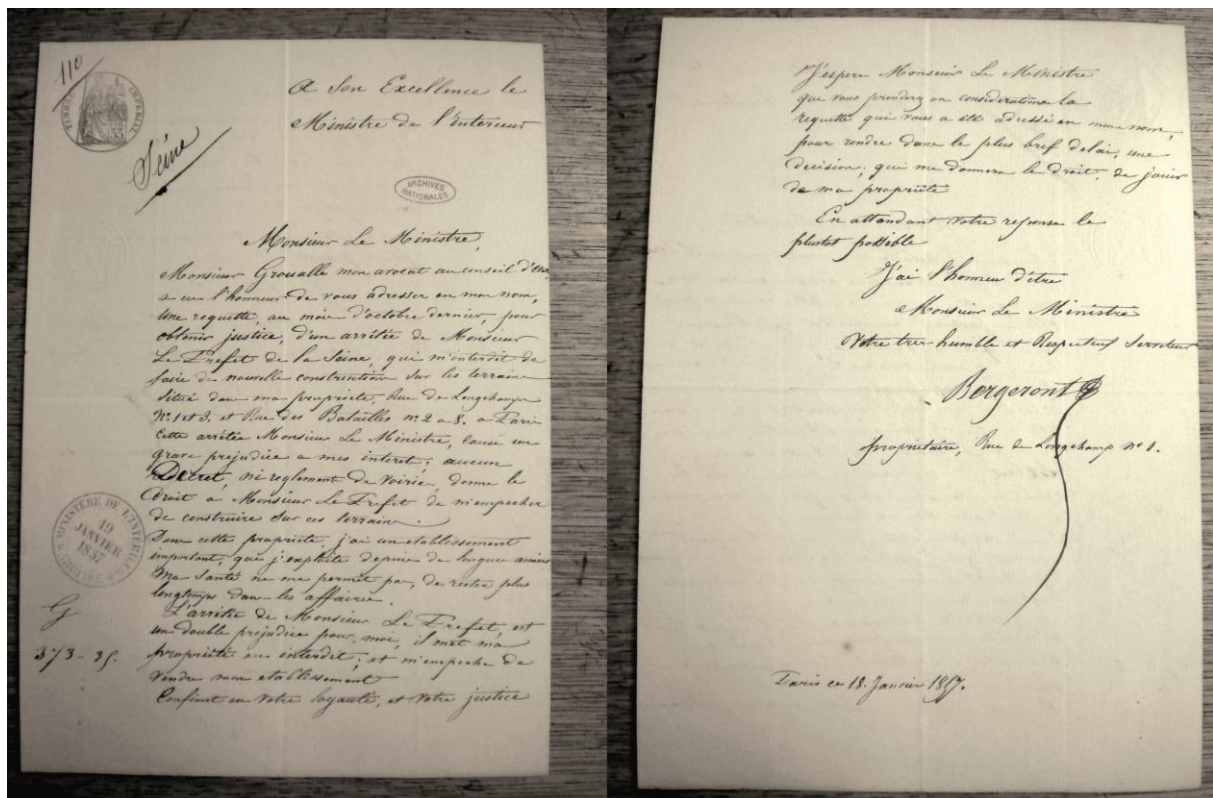 110
TIMBRE IMPERIAL
55
Seine
A Son Excellence le
Ministre de l'Interieur
ARCHIVES
NATIONALES
Monsieur Le Ministre,
Monsieur Groualle mon avocat au conseil d'Etat
a eu l'honneur de vous adresser en mon nom,
Une requette, au mois d'octobre dernier, pour
obtenir justice, d'un arrêtée de Monsieur
Le Prefet de la Seine, qui m'interdit de
faire de nouvelle construction sur les terrains
situé dans ma propriete, Rue de Longchamps
No. 1 et 3. et Rue des Batailles no. 2 a 8. a Paris
Cette arrêtée Monsieur Le Ministre, cause un
grave prejudice a mes interet; aucun
Decret, ni reglement de Voirie, donne le
Droit a Monsieur Le Prefet de m'empecher
de construire sur ces terrains.
Dans cette propriete, j'ai un etablissement
important, que j'exploite depuis de longues années
Ma Santé ne me permet pas, de rester plus
longtemps dans les affaires.
L'arrêtée de Monsieur Le Prefet, est
un double prejudice pour moi, il met ma
propriété en interdit; et m'empeche de
Vendre mon etablissement
Confiant en Votre loyauté, et Votre justice
MINISTÈRE DE L'INTERIEUR
19
JANVIER
1857
G
373-35.
J'espere Monsieur Le Ministre
que vous prendrez en consideration la
requette qui vous a été adressé en mon nom,
pour rendre dans le plus bref delai, une
decision, qui me donnera le droit, de jouir
de ma propriété
En attendant votre reponse le
plustot possible
J'ai l'honneur d'être
Monsieur Le Ministre
Votre tres humble et Respectueux Serviteur
Bergeront
propriétaire, Rue de Longchamp no 1.
Paris ce 18. Janvier 1857.